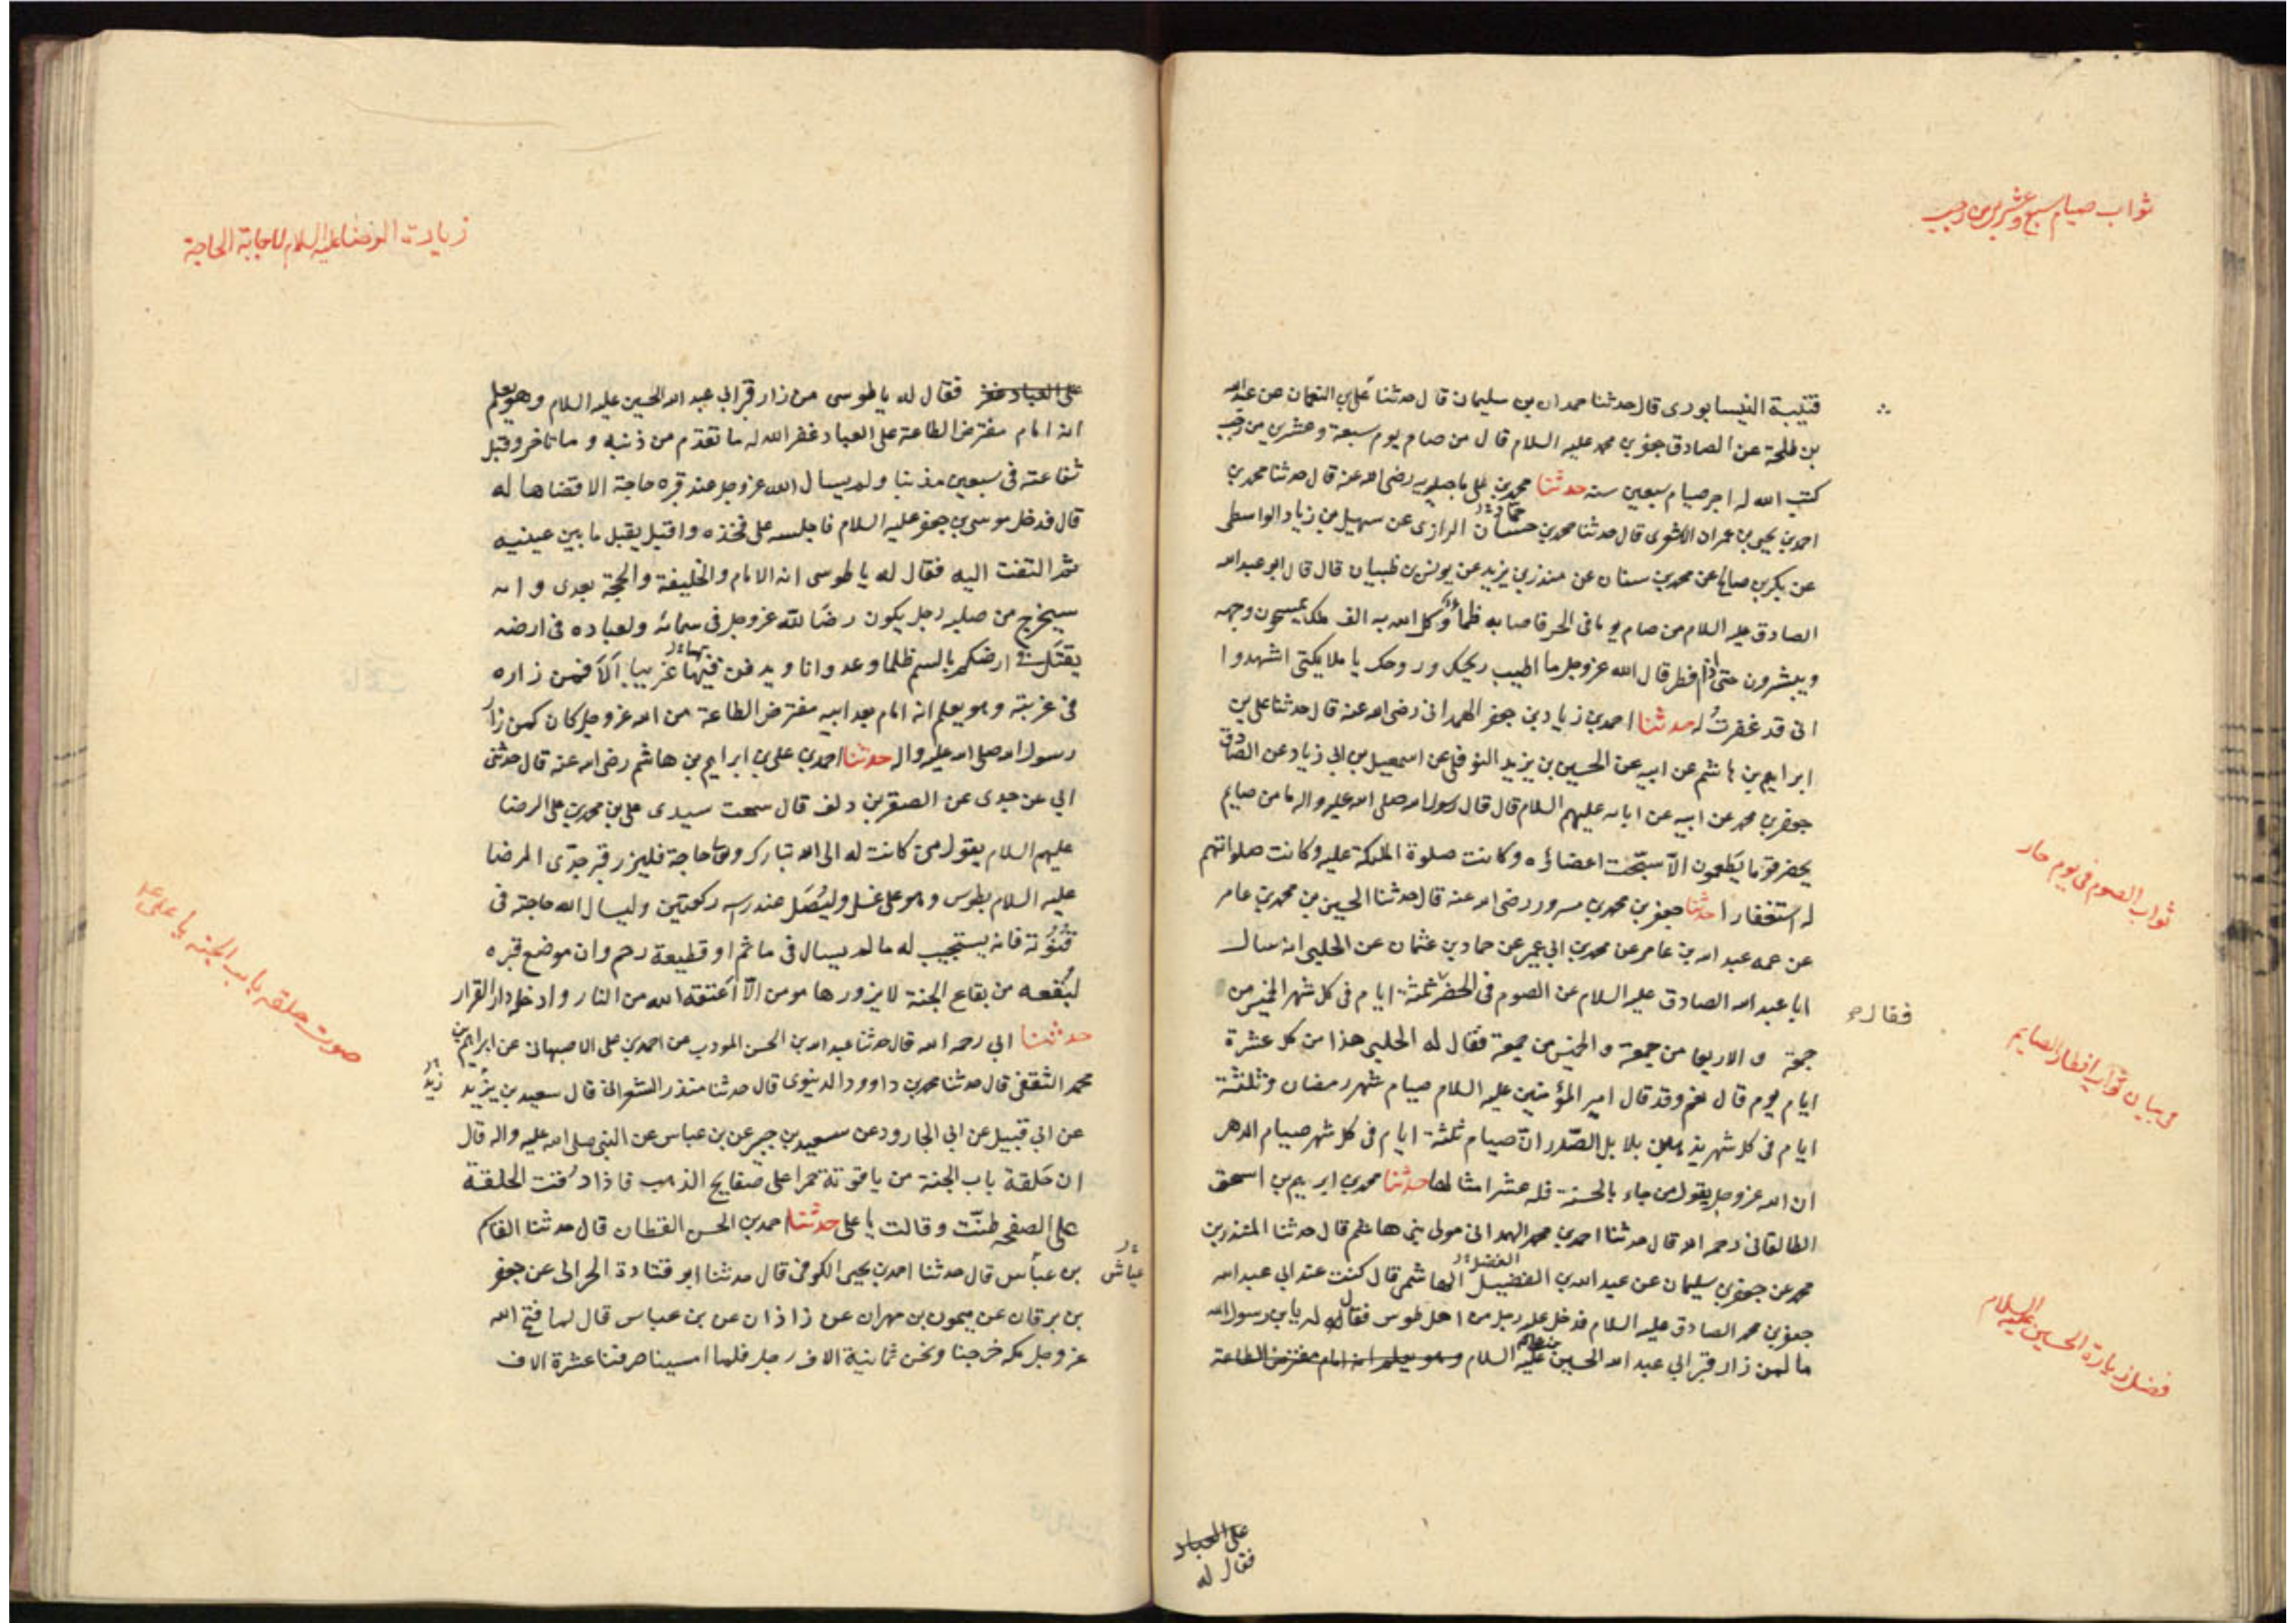 ثواب صيام سبع وعشرين من رجب
قتيبة النيسابورى قال حدثنا حمدان بن سليمان قال حدثنا على بن النعمان عن عبد الله
بن طلحة عن الصادق جعفر بن محمد عليه السلام قال من صام يوم سبعة وعشرين من رجب
كتب الله له اجر صيام سبعين سنه حدثنا محمد بن على ماجيلويه رضى الله عنه قال حدثنا محمد بن
احمد بن يحيى بن عمران الاشعرى قال حدثنا محمد بن حسان الرازى عن سهيل بن زياد الواسطى
عن بكر بن صالح عن محمد بن سنان عن منذر بن يزيد عن يونس بن ظبيان قال قال ابو عبد الله
الصادق عليه السلام من صام يوما فى الحر فاصابه ظمأ وكل الله به الف ملك يمسحون وجهه
ويبشرون حتى اذا افطر قال الله عز وجل ما اطيب ريحك وروحك يا ملايكتى اشهدوا
انى قد غفرت له حدثنا احمد بن زياد بن جعفر الهمدانى رضى الله عنه قال حدثنا على بن
ابراهيم بن هاشم عن ابيه عن الحسين بن يزيد النوفلى عن اسمعيل بن ابى زياد عن الصادق
جعفر بن محمد عن ابيه عن ابائه عليهم السلام قال قال رسول الله صلى الله عليه واله ما من صايم
يحضر قوما يطعمون الا سبّحت اعضاؤه وكانت صلوة الملئكة عليه وكانت صلواتهم
له استغفارا حدثنا جعفر بن محمد بن مسرور رضى الله عنه قال حدثنا الحسين بن محمد بن عامر
عن عمه عبد الله بن عامر عن محمد بن ابى عمير عن حماد بن عثمان عن الحلبى انه سال
ابا عبد الله الصادق عليه السلام عن الصوم فى الحضر ثلثة ايام فى كل شهر الخميس من
فقال
جمعة و الاربعا من جمعة و الخميس من جمعة فقال له الحلبى هذا من كل عشرة
ايام يوم قال نعم وقد قال امير المؤمنين عليه السلام صيام شهر رمضان وثلثة
ايام فى كل شهر يذهبن بلابل الصّدر انّ صيام ثلثة ايام فى كل شهر صيام الدهر
ان الله عز وجل يقول من جاء بالحسنة فله عشر امثالها حدثنا محمد بن ابرهيم بن اسحق
الطالقانى رحمه الله قال حدثنا احمد بن محمد الهمدانى مولى بنى هاشم قال حدثنا المنذر بن
محمد عن جعفر بن سليمان عن عبد الله بن الفضيل الهاشمى قال كنت عند ابى عبد الله
الفضل
جعفر بن محمد الصادق عليه السلام فدخل عليه رجل من اهل طوس فقال له يابن رسول الله
ما لمن زار قبر ابى عبد الله الحسين عليه السلام وهو يعلم انه امام مفترض الطاعة
على العباد
فقال له
ثواب الصوم فى يوم حار
فضل زيارة الحسين عليه السلام
زيارت الرضا عليه السلام لاجابة الحاجة
على العباد فقال له يا طوسى من زار قبر ابى عبد الله الحسين عليه السلام وهو يعلم
انه امام مفترض الطاعة على العباد غفر الله له ما تقدّم من ذنبه و ما تاخر وقبل
شفاعته فى سبعين مذنبا ولم يسال الله عز وجل عند قبره حاجة الا قضاها له
قال فدخل موسى بن جعفر عليه السلام فاجلسه على فخذه واقبل يقبل ما بين عينيه
ثم التفت اليه فقال له يا طوسى انه الامام والخليفة والحجة بعدى و انه
سيخرج من صلبه رجل يكون رضًا لله عز وجل فى سمائه ولعباده فى ارضه
يقتل فى ارضكم بالسم ظلما وعدوانا ويدفن فيها غريبا الا فمن زاره
فى غربته وهو يعلم انه امام بعد ابيه مفترض الطاعة من الله عز وجل كان كمن زار
رسول الله صلى الله عليه واله حدثنا احمد بن على بن ابراهيم بن هاشم رضى الله عنه قال حدثنى
ابى عن جدى عن الصقر بن دلف قال سمعت سيدى على بن محمد بن على الرضا
عليهم السلام يقول من كانت له الى الله تبارك وتعالى حاجة فليزر قبر جدّى الرضا
عليه السلام بطوس وهو على غسل وليُصَل عند رأسه ركعتين وليسال الله حاجته فى
قنُوته فانه يستجيب له ما لم يسال فى ماثم او قطيعة رحم وان موضع قبره
لبُقعه من بقاع الجنة لا يزورها مومن الا اعتقه الله من النار وادخله دار القرار
حدثنا ابى رحمه الله قال حدثنا عبد الله بن الحسن المودب عن احمد بن على الاصبهانى عن ابراهيم بن
محمد الثقفى قال حدثنا محمد بن داوود الدينوى قال حدثنا منذر الشعرانى قال سعيد بن يزيد
عن ابى قبيل عن ابى الجارود عن سعيد بن جبر عن بن عباس عن النبى صلى الله عليه واله قال
ان حَلقة باب الجنة من ياقوتة حمرا على صفايح الذهب فاذا دُقت الحلقة
على الصفحه طنّت وقالت يا على حدثنا احمد بن الحسن القطان قال حدثنا القاسم
بن عبّاس قال حدثنا احمد بن يحيى الكوفى قال حدثنا ابو قتادة الحرانى عن جعفر
عياش
بن برقان عن ميمون بن مهران عن زاذان عن بن عباس قال لما فتح الله
عز وجل مكه خرجنا ونحن ثمانية الاف رجل فلما امسينا صرنا عشرة الاف
صوت حلقه باب الجنه يا على